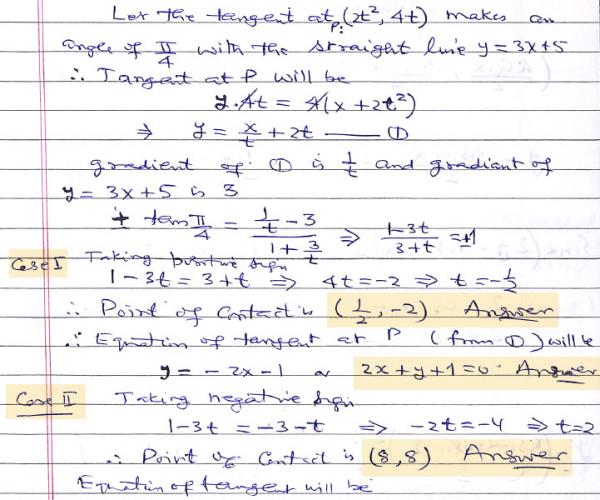 Let the tangent at P: (2t², 4t) makes an
angle of π/4 with the straight line y = 3x+5
∴ Tangent at P will be
y.4t = 4(x + 2t²)
⇒ y = x/t + 2t —— ①
gradient of ① is 1/t and gradient of
y = 3x+5 is 3
± tan π/4 = (1/t − 3)/(1 + 3/t) ⇒ (1−3t)/(3+t) = ±1
Case I Taking positive sign
1 − 3t = 3 + t ⇒ 4t = −2 ⇒ t = −1/2
∴ Point of Contact is (1/2, −2) Answer
∴ Equation of tangent at P (from ①) will be
y = −2x −1 or 2x + y + 1 = 0. Answer
Case II Taking negative sign
1−3t = −3−t ⇒ −2t = −4 ⇒ t = 2
∴ Point of Contact is (8, 8) Answer
Equation of tangent will be